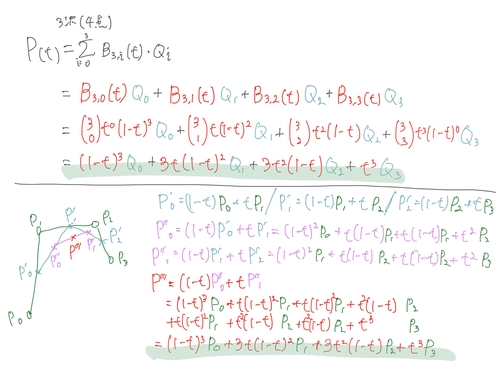 3次(4点)
P(t) = Σ³ᵢ₌₀ B₃,ᵢ(t)・Qᵢ
= B₃,₀(t)Q₀ + B₃,₁(t)Q₁ + B₃,₂(t)Q₂ + B₃,₃(t)Q₃
= (3 0)t⁰(1-t)³Q₀ + (3 1)t(1-t)²Q₁ + (3 2)t²(1-t)Q₂ + (3 3)t³(1-t)⁰Q₃
= (1-t)³Q₀ + 3t(1-t)²Q₁ + 3t²(1-t)Q₂ + t³Q₃
P'₀=(1-t)P₀+tP₁ / P'₁=(1-t)P₁+tP₂ / P'₂=(1-t)P₂+tP₃
P''₀=(1-t)P'₀+tP'₁=(1-t)²P₀+t(1-t)P₁+t(1-t)P₁+t²P₂
P''₁=(1-t)P'₁+tP'₂=(1-t)²P₁+t(1-t)P₂+t(1-t)P₂+t²P₃
P'''=(1-t)P''₀+tP''₁
=(1-t)³P₀+t(1-t)²P₁+t(1-t)²P₁+t²(1-t)P₂
+t(1-t)²P₁+t²(1-t)P₂+t²(1-t)P₂+t³P₃
=(1-t)³P₀+3t(1-t)²P₁+3t²(1-t)P₂+t³P₃
P₁ P'₁ P₂
P''₀ P''' P''₁ P'₂
P'₀ P₃
P₀